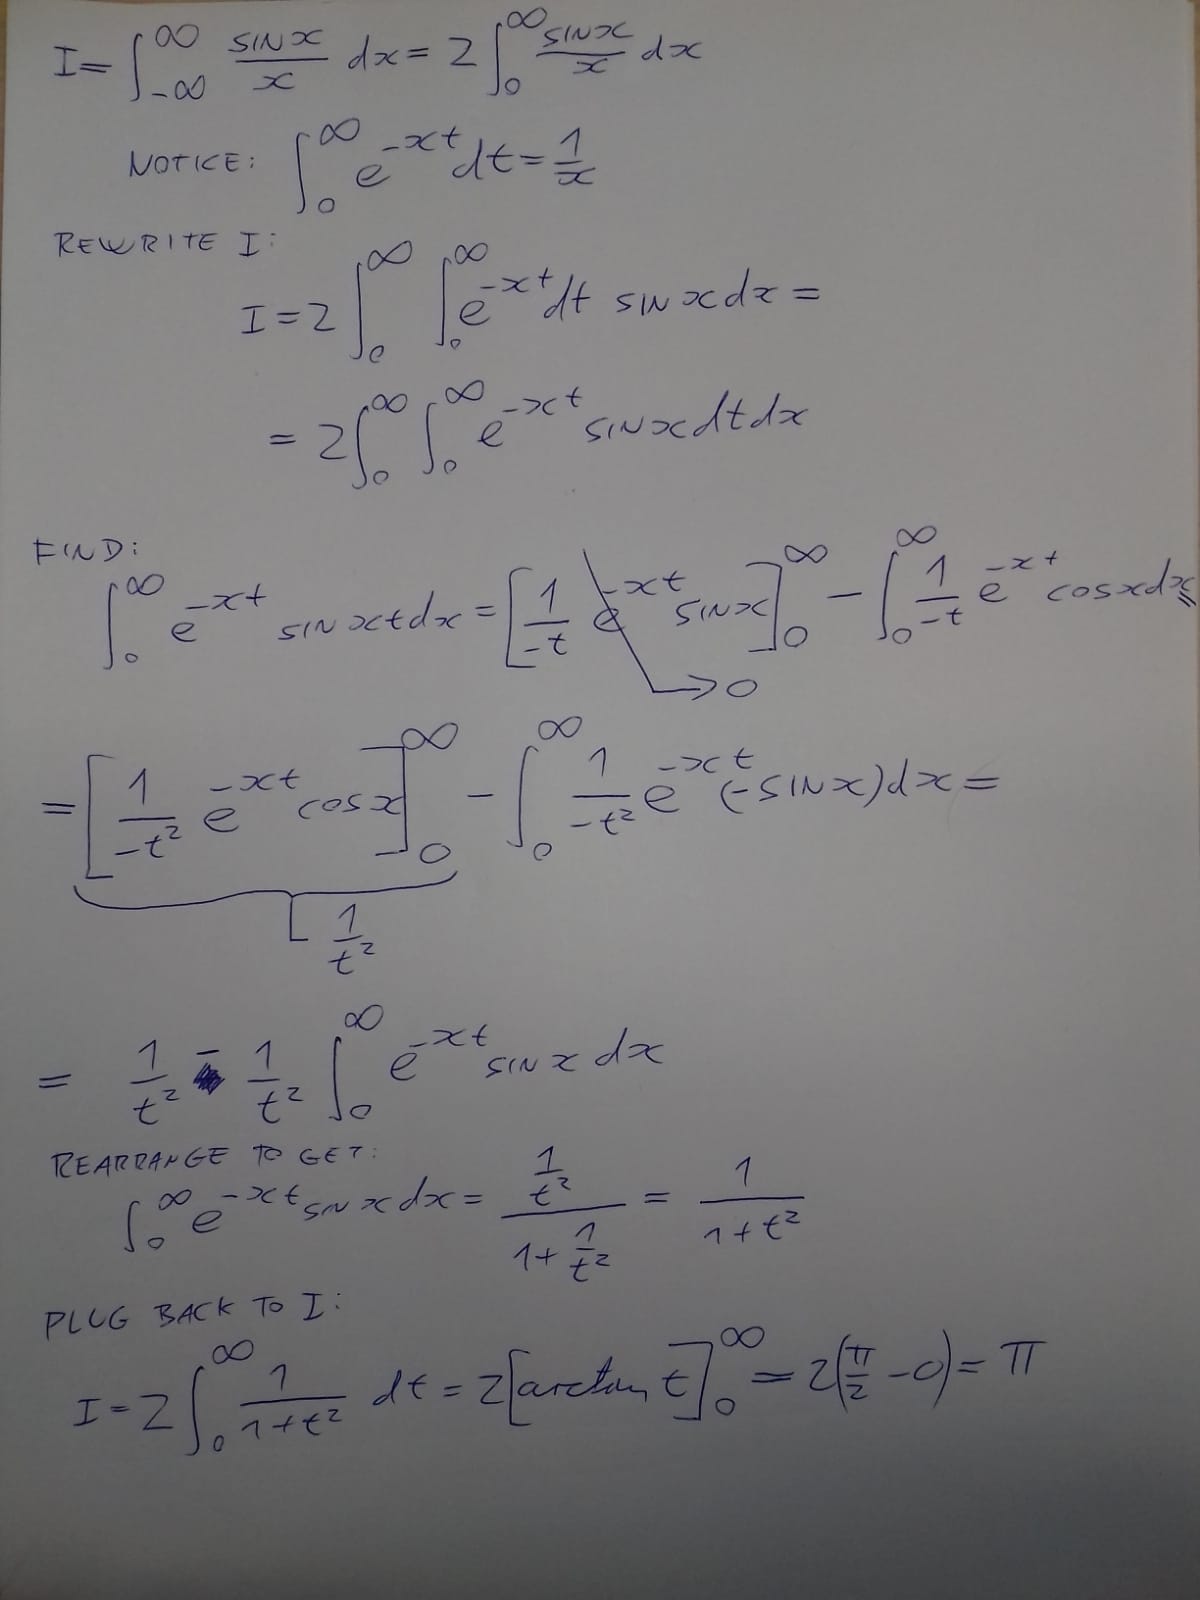 I = ∫_{-∞}^{∞} SINx/x dx = 2∫_0^∞ SINx/x dx
NOTICE: ∫_0^∞ e^{-xt}dt = 1/x
REWRITE I:
I = 2∫_0^∞ ∫_0^∞ e^{-xt}dt SIN x dx =
= 2∫_0^∞ ∫_0^∞ e^{-xt} SINx dt dx
FIND:
∫_0^∞ e^{-xt} SIN xt dx = [1/-t e^{-xt} SINx]_0^∞ - ∫_0^∞ 1/-t e^{-xt} cosx dx =
→ 0
= [1/-t² e^{-xt} cosx]_0^∞ - ∫_0^∞ 1/-t² e^{-xt} (-SINx)dx =
1/t²
= 1/t² - 1/t² ∫_0^∞ e^{-xt} SIN x dx
REARRANGE TO GET:
∫_0^∞ e^{-xt} SIN x dx = (1/t²)/(1 + 1/t²) = 1/(1+t²)
PLUG BACK TO I:
I = 2∫_0^∞ 1/(1+t²) dt = 2[arctan t]_0^∞ = 2(π/2 - 0) = π